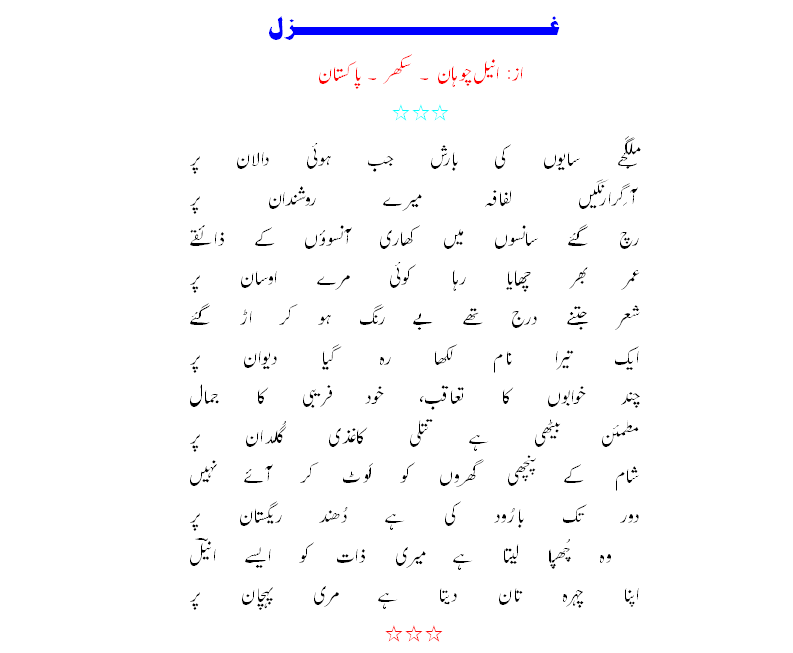 غـــــــزل
از: انیل چوہان ۔ سکھر ۔ پاکستان
☆☆☆
ملگجے سایوں کی بارش جب ہوئی دالان پر
آ گرا رنگیں لفافہ میرے روشندان پر
رچ گئے سانسوں میں کھاری آنسوؤں کے ذائقے
عمر بھر چھایا رہا کوئی مرے اوسان پر
شعر جتنے درج تھے بے رنگ ہو کر اڑ گئے
ایک تیرا نام لکھا رہ گیا دیوان پر
چند خوابوں کا تعاقب، خود فریبی کا جمال
مطمئن بیٹھی ہے تتلی کاغذی گُلدان پر
شام کے پنچھی گھروں کو لَوٹ کر آئے نہیں
دور تک بارُود کی ہے دُھند ریگستان پر
وہ چُھپا لیتا ہے میری ذات کو ایسے انیلؔ
اپنا چہرہ تان دیتا ہے مری پہچان پر
☆☆☆